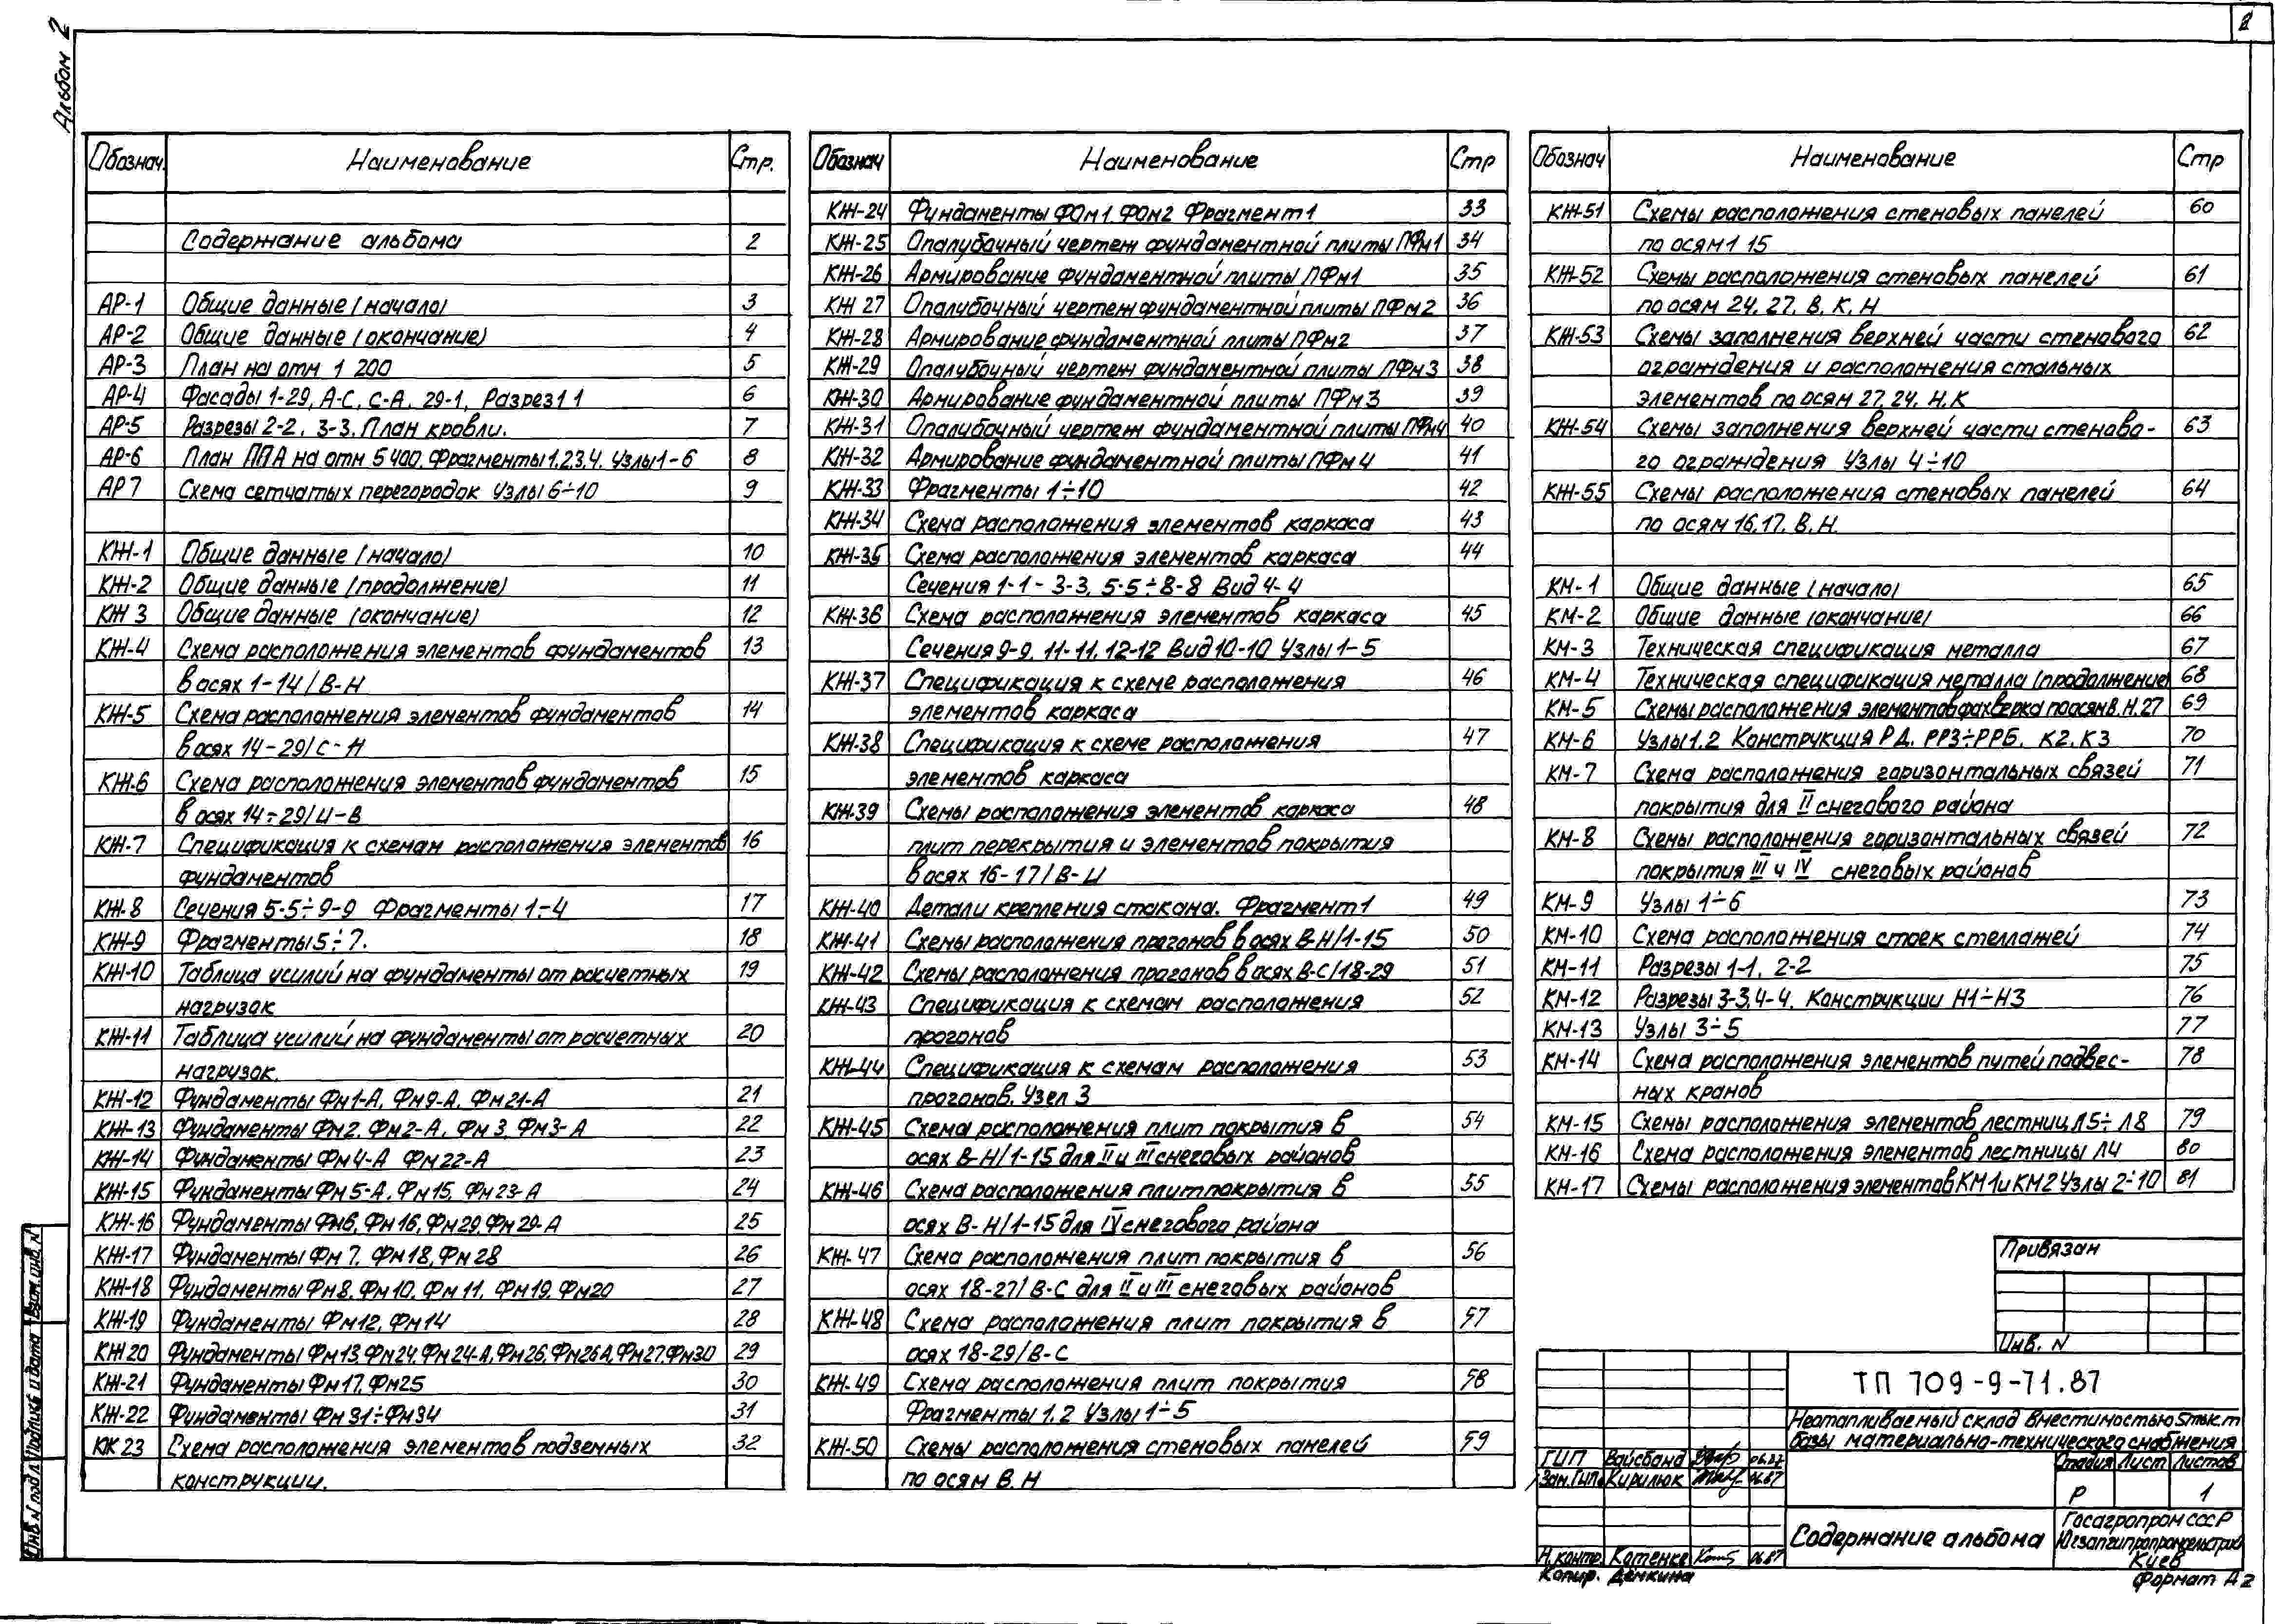 2
Альбом 2
Обознач. Наименование Стр.
Содержание альбома 2
АР-1 Общие данные (начало) 3
АР-2 Общие данные (окончание) 4
АР-3 План на отм 1 200 5
АР-4 Фасады 1-29, А-С, С-А, 29-1, Разрез 1 1 6
АР-5 Разрезы 2-2, 3-3. План кровли. 7
АР-6 План ППА на отм 5 400. Фрагменты 1,2,3,4. Узлы 1-6 8
АР 7 Схема сетчатых перегородок Узлы 6÷10 9
КЖ-1 Общие данные (начало) 10
КЖ-2 Общие данные (продолжение) 11
КЖ 3 Общие данные (окончание) 12
КЖ-4 Схема расположения элементов фундаментов 13
в осях 1-14/В-Н
КЖ-5 Схема расположения элементов фундаментов 14
в осях 14-29/С-Н
КЖ-6 Схема расположения элементов фундаментов 15
в осях 14÷29/И-В
КЖ-7 Спецификация к схемам расположения элементов 16
фундаментов
КЖ-8 Сечения 5-5÷9-9 Фрагменты 1÷4 17
КЖ-9 Фрагменты 5÷7. 18
КЖ-10 Таблица усилий на фундаменты от расчетных 19
нагрузок
КЖ-11 Таблица усилий на фундаменты от расчетных 20
нагрузок.
КЖ-12 Фундаменты Фм1-А, Фм9-А, Фм21-А 21
КЖ-13 Фундаменты Фм2, Фм2-А, Фм 3, Фм3-А 22
КЖ-14 Фундаменты Фм4-А Фм22-А 23
КЖ-15 Фундаменты Фм 5-А, Фм15, Фм 23-А 24
КЖ-16 Фундаменты Фм6, Фм16, Фм29, Фм 29-А 25
КЖ-17 Фундаменты Фм 7, Фм18, Фм 28 26
КЖ-18 Фундаменты Фм8, Фм10, Фм 11, Фм19, Фм20 27
КЖ-19 Фундаменты Фм12, Фм14 28
КЖ 20 Фундаменты Фм13, Фм24, Фм24-А, Фм26, Фм26А, Фм27, Фм30 29
КЖ-21 Фундаменты Фм17, Фм25 30
КЖ-22 Фундаменты Фм 31÷Фм34 31
КЖ 23 Схема расположения элементов подземных 32
конструкции.
Обознач Наименование Стр
КЖ-24 Фундаменты ФОм1, ФОм2 Фрагмент 1 33
КЖ-25 Опалубочный чертеж фундаментной плиты ПФм1 34
КЖ-26 Армирование фундаментной плиты ПФм1 35
КЖ 27 Опалубочный чертеж фундаментной плиты ПФм2 36
КЖ-28 Армирование фундаментной плиты ПФм2 37
КЖ-29 Опалубочный чертеж фундаментной плиты ПФм3 38
КЖ-30 Армирование фундаментной плиты ПФм3 39
КЖ-31 Опалубочный чертеж фундаментной плиты ПФм4 40
КЖ-32 Армирование фундаментной плиты ПФм4 41
КЖ-33 Фрагменты 1÷10 42
КЖ-34 Схема расположения элементов каркаса 43
КЖ-35 Схема расположения элементов каркаса 44
Сечения 1-1 - 3-3, 5-5÷8-8 Вид 4-4
КЖ-36 Схема расположения элементов каркаса 45
Сечения 9-9, 11-11, 12-12 Вид 10-10 Узлы 1-5
КЖ-37 Спецификация к схеме расположения 46
элементов каркаса
КЖ-38 Спецификация к схеме расположения 47
элементов каркаса
КЖ-39 Схемы расположения элементов каркаса 48
плит перекрытия и элементов покрытия
в осях 16-17/В-И
КЖ-40 Детали крепления стакана. Фрагмент 1 49
КЖ-41 Схемы расположения прогонов в осях В-Н/1-15 50
КЖ-42 Схемы расположения прогонов в осях В-С/18-29 51
КЖ-43 Спецификация к схемам расположения 52
прогонов
КЖ-44 Спецификация к схемам расположения 53
прогонов. Узел 3
КЖ-45 Схема расположения плит покрытия в 54
осях В-Н/1-15 для II и III снеговых районов
КЖ-46 Схема расположения плит покрытия в 55
осях В-Н/1-15 для IV снегового района
КЖ-47 Схема расположения плит покрытия в 56
осях 18-27/В-С для II и III снеговых районов
КЖ-48 Схема расположения плит покрытия в 57
осях 18-29/В-С
КЖ-49 Схема расположения плит покрытия 58
Фрагменты 1,2 Узлы 1÷5
КЖ-50 Схемы расположения стеновых панелей 59
по осям В, Н
Обознач Наименование Стр
КЖ-51 Схемы расположения стеновых панелей 60
по осям 1 15
КЖ-52 Схемы расположения стеновых панелей 61
по осям 24, 27, В, К, Н
КЖ-53 Схемы заполнения верхней части стенового 62
ограждения и расположения стальных
элементов по осям 27, 24, Н, К
КЖ-54 Схемы заполнения верхней части стеново- 63
го ограждения Узлы 4÷10
КЖ-55 Схемы расположения стеновых панелей 64
по осям 16, 17, В, Н.
КМ-1 Общие данные (начало) 65
КМ-2 Общие данные (окончание) 66
КМ-3 Техническая спецификация металла 67
КМ-4 Техническая спецификация металла (продолжение) 68
КМ-5 Схемы расположения элементов фахверка по осям В, Н, 27 69
КМ-6 Узлы 1,2 Конструкция РД, РР3÷РР6, К2, К3 70
КМ-7 Схема расположения горизонтальных связей 71
покрытия для II снегового района
КМ-8 Схемы расположения горизонтальных связей 72
покрытия III и IV снеговых районов
КМ-9 Узлы 1÷6 73
КМ-10 Схема расположения стоек стеллажей 74
КМ-11 Разрезы 1-1, 2-2 75
КМ-12 Разрезы 3-3, 4-4. Конструкции Н1÷Н3 76
КМ-13 Узлы 3÷5 77
КМ-14 Схема расположения элементов путей подвес- 78
ных кранов
КМ-15 Схемы расположения элементов лестниц Л5÷Л8 79
КМ-16 Схема расположения элементов лестницы Л4 80
КМ-17 Схемы расположения элементов КМ1 и КМ2 Узлы 2÷10 81
Привязан
Инв. N
ТП 709-9-71.87
Неотапливаемый склад вместимостью 5тыс.т
базы материально-технического снабжения
ГИП Вайсбанд 06.87
Зам.ГИПа Кирилюк 06.87
Стадия Лист Листов
Р 1
Содержание альбома
Госагропром СССР
Югзапгипропромсельстрой
Киев
Н.контр. Котенко 06.87
Копир. Демкина
Формат А2
Инв N подл Подпись и дата Взам.инв.N